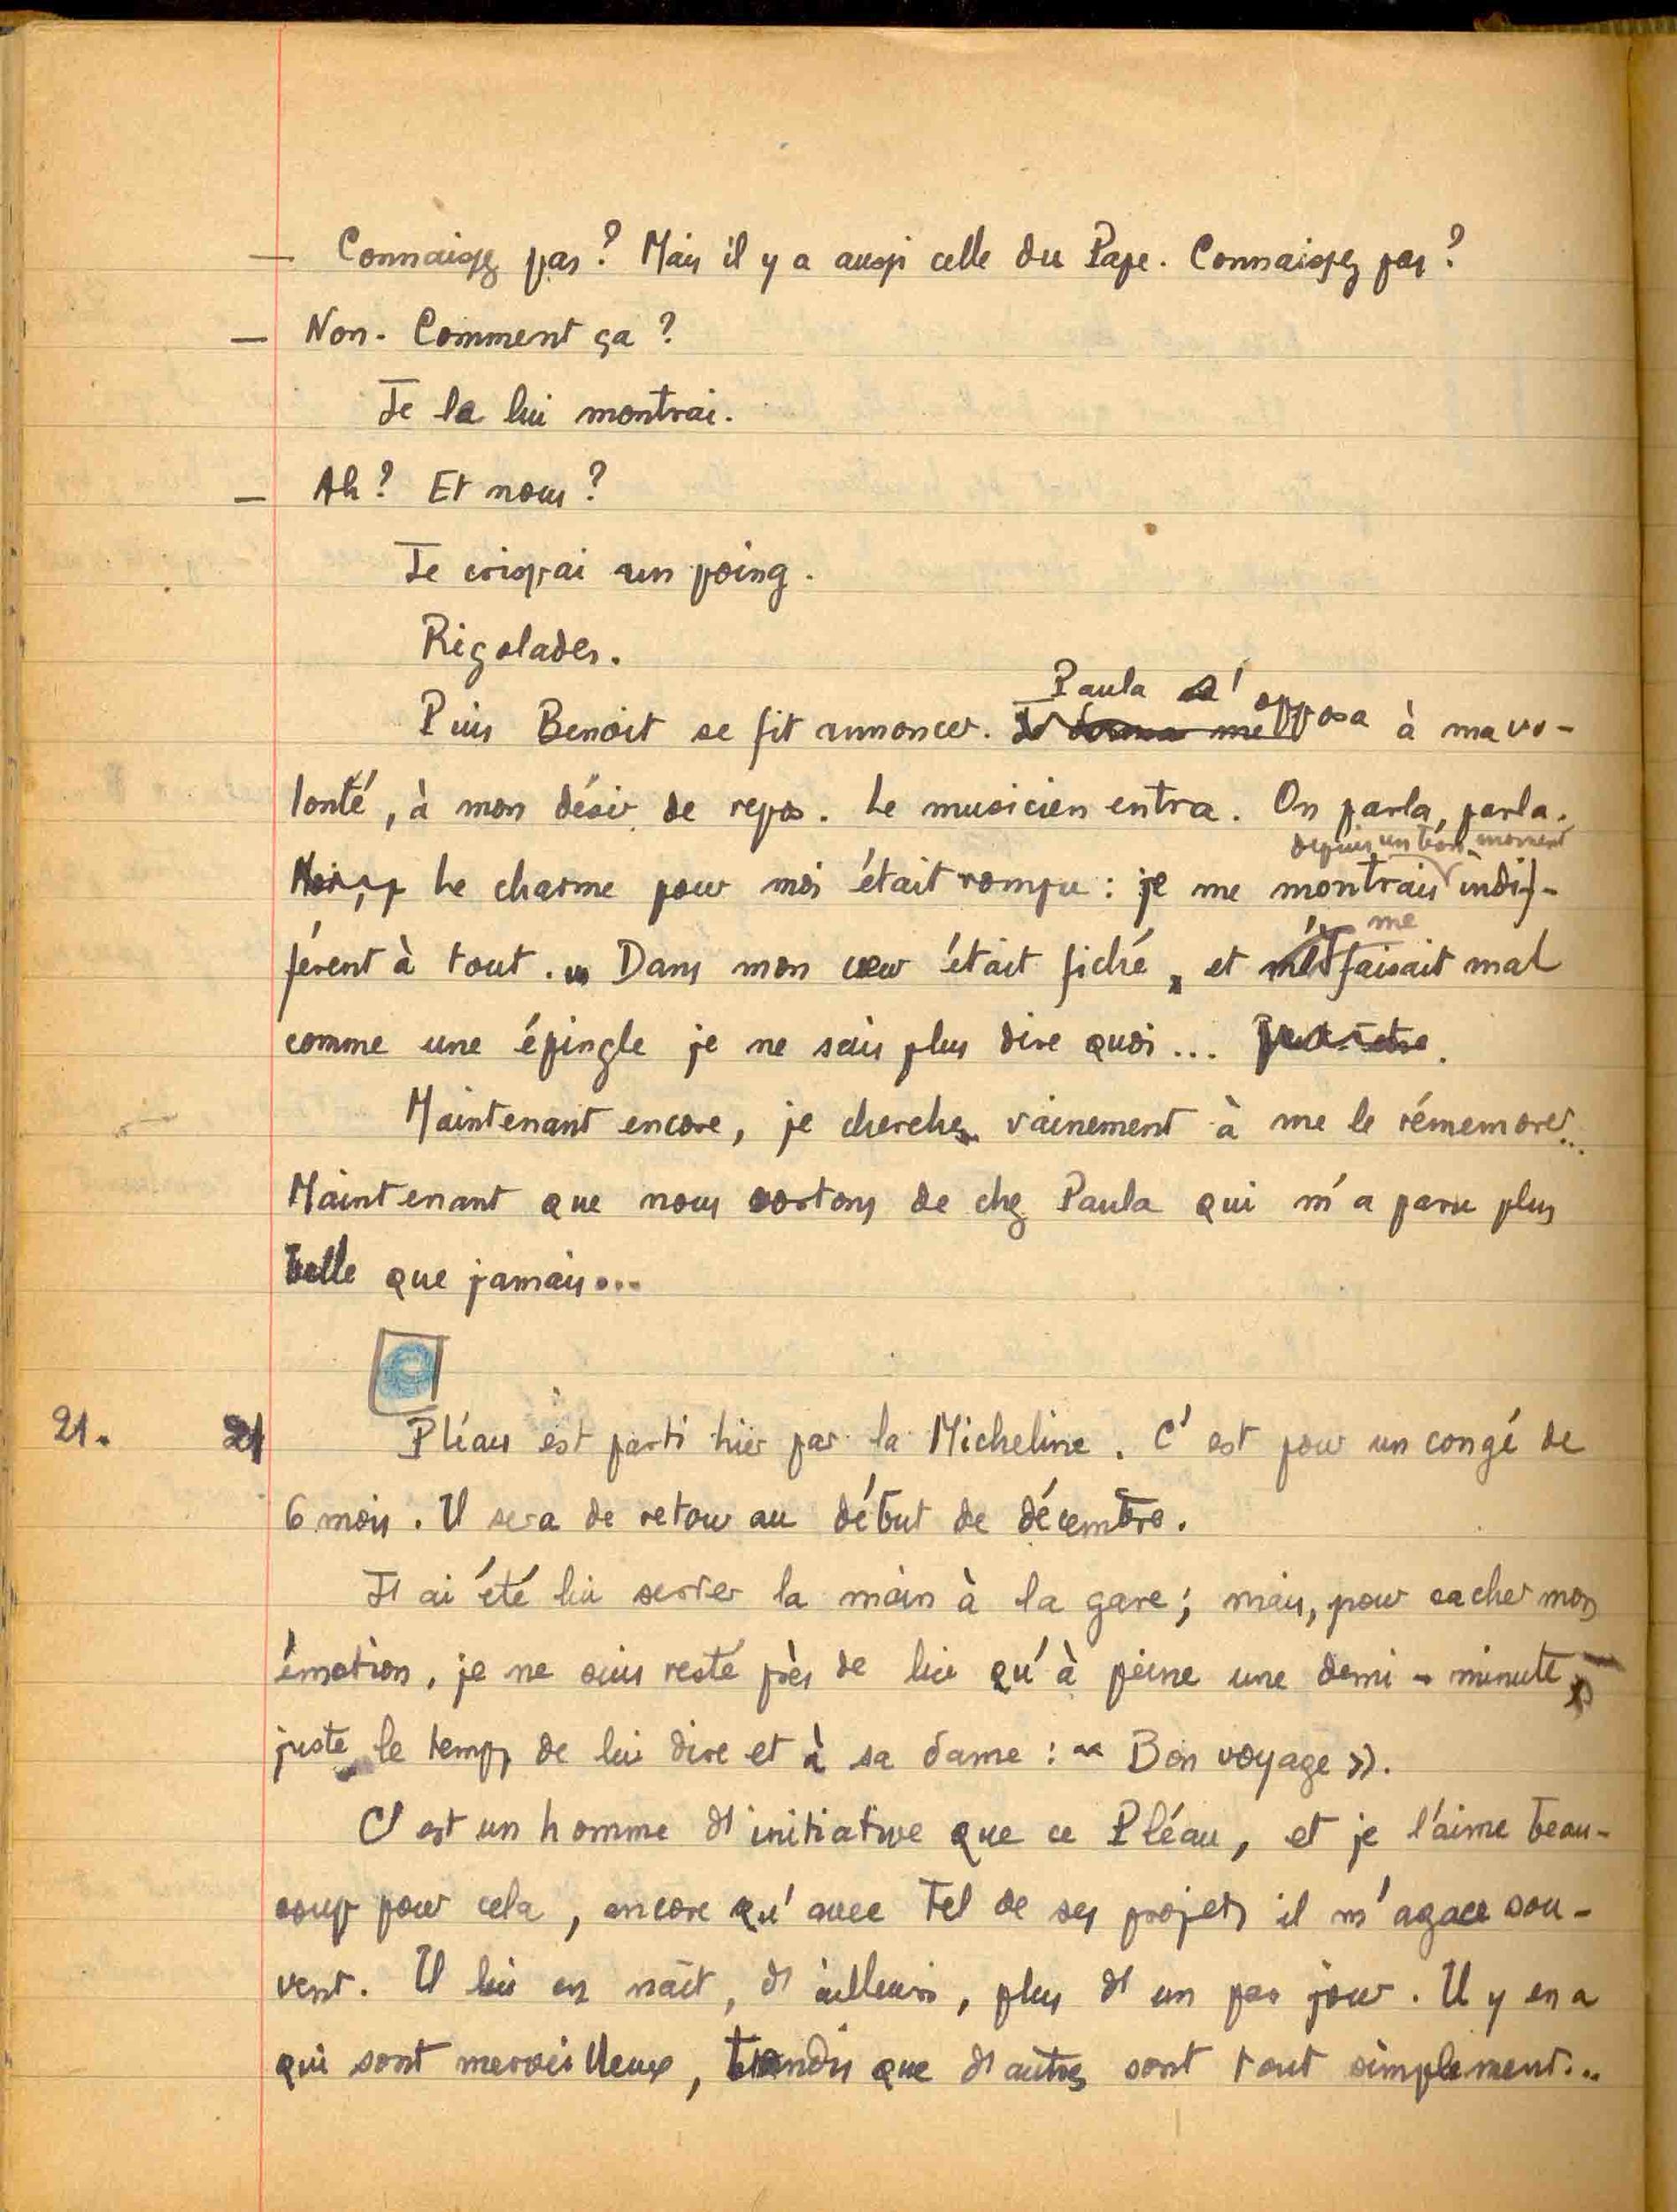 — Connaissez pas? Mais il y a aussi celle du Pape. Connaissez pas?
— Non. Comment ça?
Je la lui montrai.
— Ah? Et nous?
Je crispai un poing.
Rigolades.
Paula s'opposa
Puis Benoit se fit annoncer. à ma vo-
lonté, à mon désir de repos. Le musicien entra. On parla, parla.
depuis un bon moment
Le charme pour moi était rompu : je me montrais indif-
me
férent à tout. Dans mon cœur était fiché, et faisait mal
comme une épingle je ne sais plus dire quoi... Peut-être.
Maintenant encore, je cherche vainement à me le rémemorer...
Maintenant que nous sortons de chez Paula qui m'a paru plus
belle que jamais...
21. 21 Pléau est parti hier par la Micheline. C'est pour un congé de
6 mois. Il sera de retour au début de décembre.
J'ai été lui serrer la main à la gare; mais, pour cacher mon
émotion, je ne suis resté près de lui qu'à peine une demi-minute,
juste le temps de lui dire et à sa dame : « Bon voyage ».
C'est un homme d'initiative que ce Pléau, et je l'aime beau-
coup pour cela, encore qu'avec tel de ses projets il m'agace sou-
vent. Il lui en naît, d'ailleurs, plus d'un par jour. Il y en a
qui sont merveilleux, tandis que d'autres sont tout simplement...